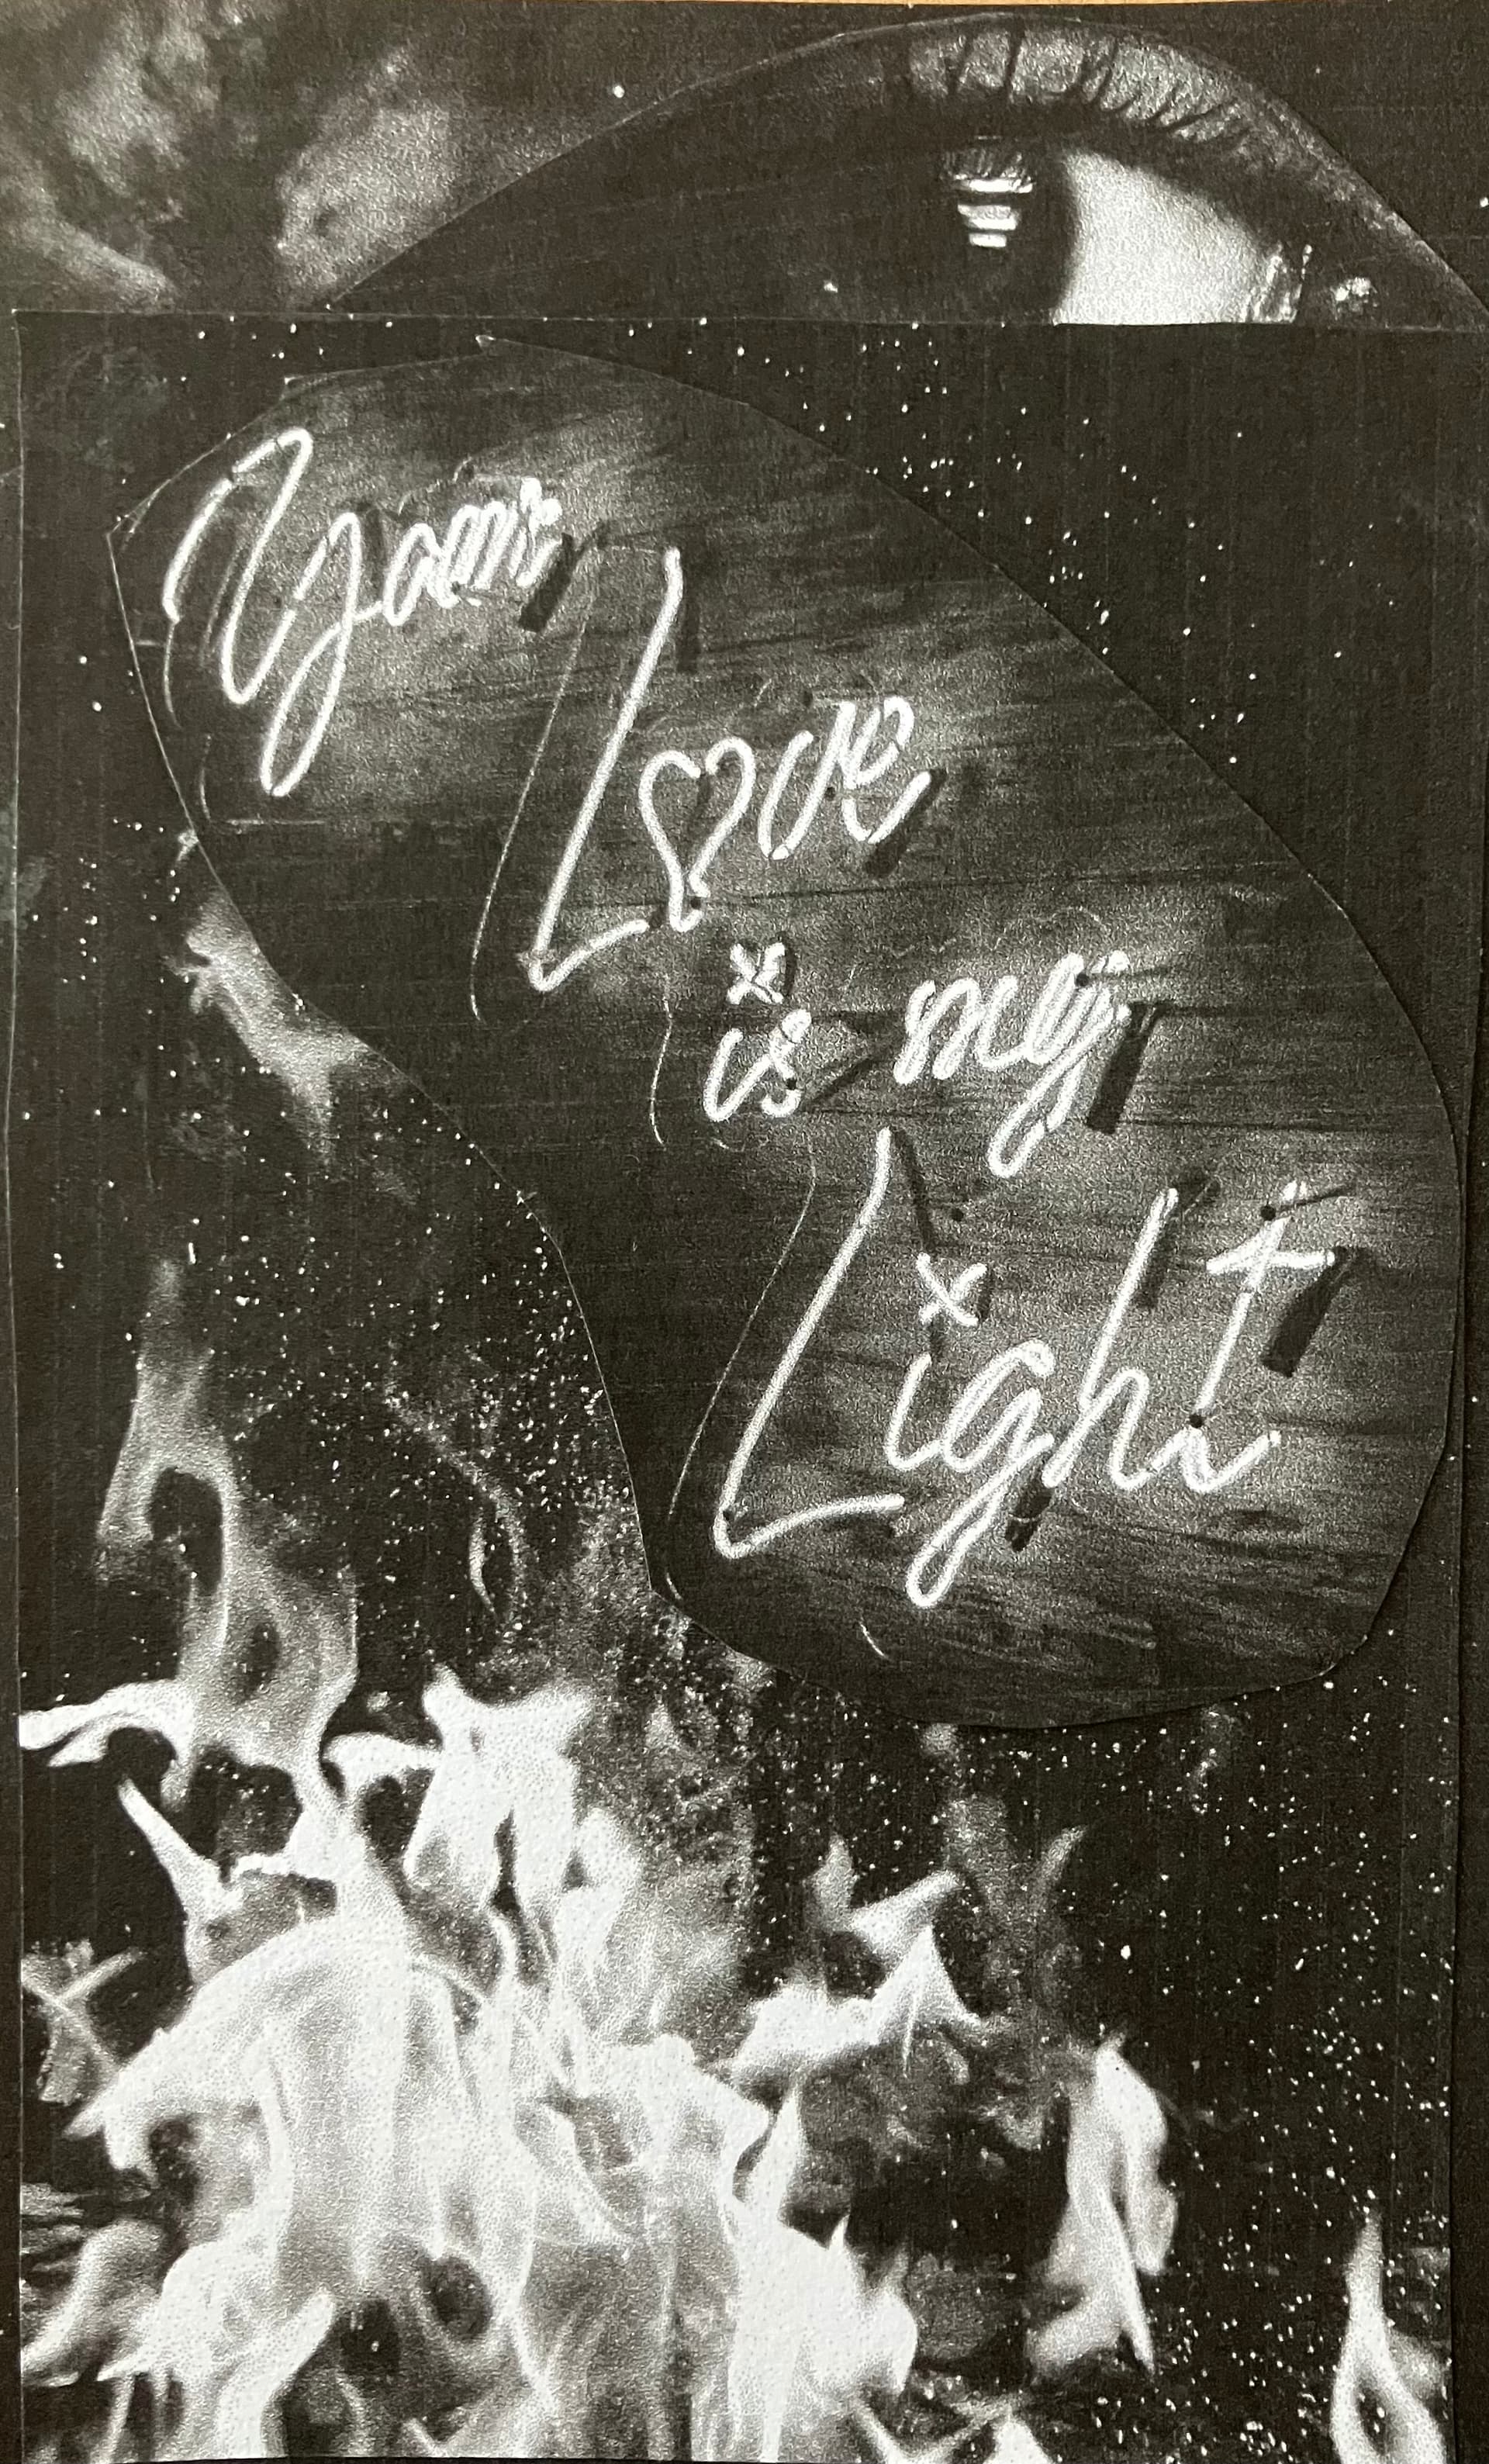 Your
Love
is my
Light